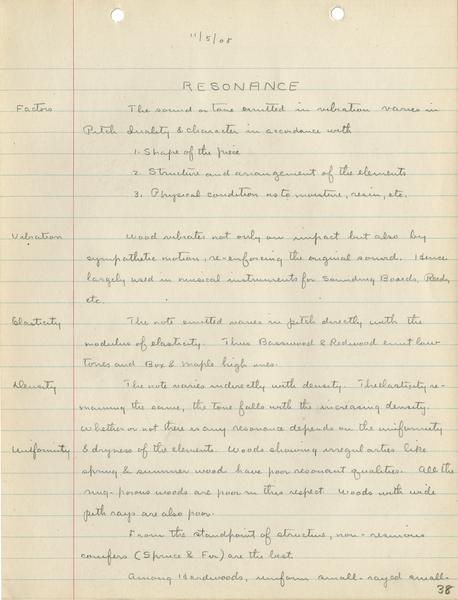 11/5/08
RESONANCE
Factors The sound or tone emitted in vibration varies in
Pitch Quality & character in accordance with
1. Shape of the piece
2. Structure and arrangement of the elements
3. Physical condition as to moisture, resin, etc.
Vibration Wood vibrates not only on impact but also by
sympathetic motion, re-enforcing the original sound. Hence
largely used in musical instruments for Sounding Boards, Reeds,
etc.
Elasticity The note emitted varies in pitch directly with the
modulus of elasticity. Thus Basswood & Redwood emit low
tones and Box & Maple high ones.
Density The note varies indirectly with density. The elasticity re-
maining the same, the tone falls with the increasing density.
Whether or not there is any resonance depends on the uniformity
Uniformity & dryness of the elements. Woods showing irregularties like
spring & summer wood have poor resonant qualities. All the
ring-porous woods are poor in this respect. Woods with wide
pith rays are also poor.
From the standpoint of structure, non-resinous
conifers (Spruce & Fir) are the best.
Among Hardwoods, uniform small-rayed small-
38